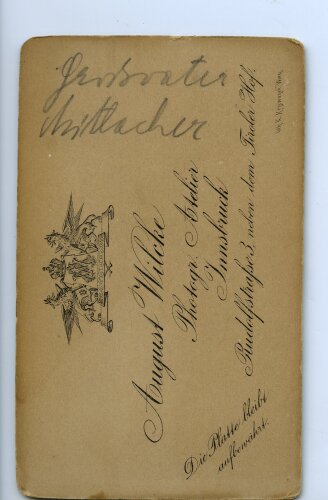 Mitlacher
August Wilcke
Photogr. Atelier
Innsbruck
Rudolfstraße 3, neben dem Tiroler Hof.
Die Platte bleibt
aufbewahrt.